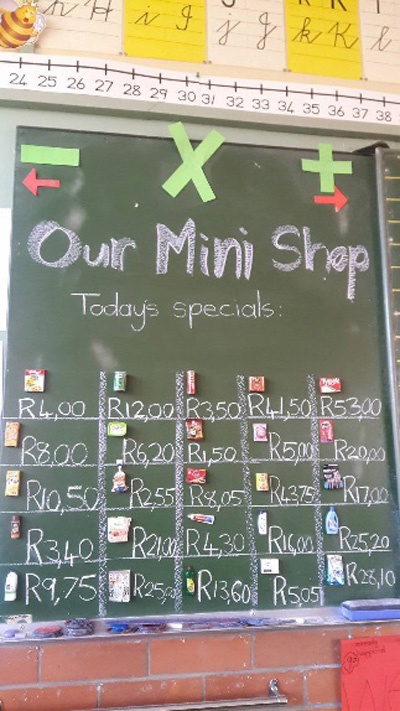 h H i I j J k K l
24 25 26 27 28 29 30 31 32 33 34 35 36 37 38
− X +
Our Mini Shop
Today's specials:
R4,00 R12,00 R3,50 R41,50 R53,00
R8,00 R6,20 R1,50 R5,00 R20,00
R10,50 R2,55 R8,05 R43,75 R17,00
R3,40 R21,00 R4,30 R16,00 R25,20
R9,75 R25,00 R13,60 R5,05 R28,10
go